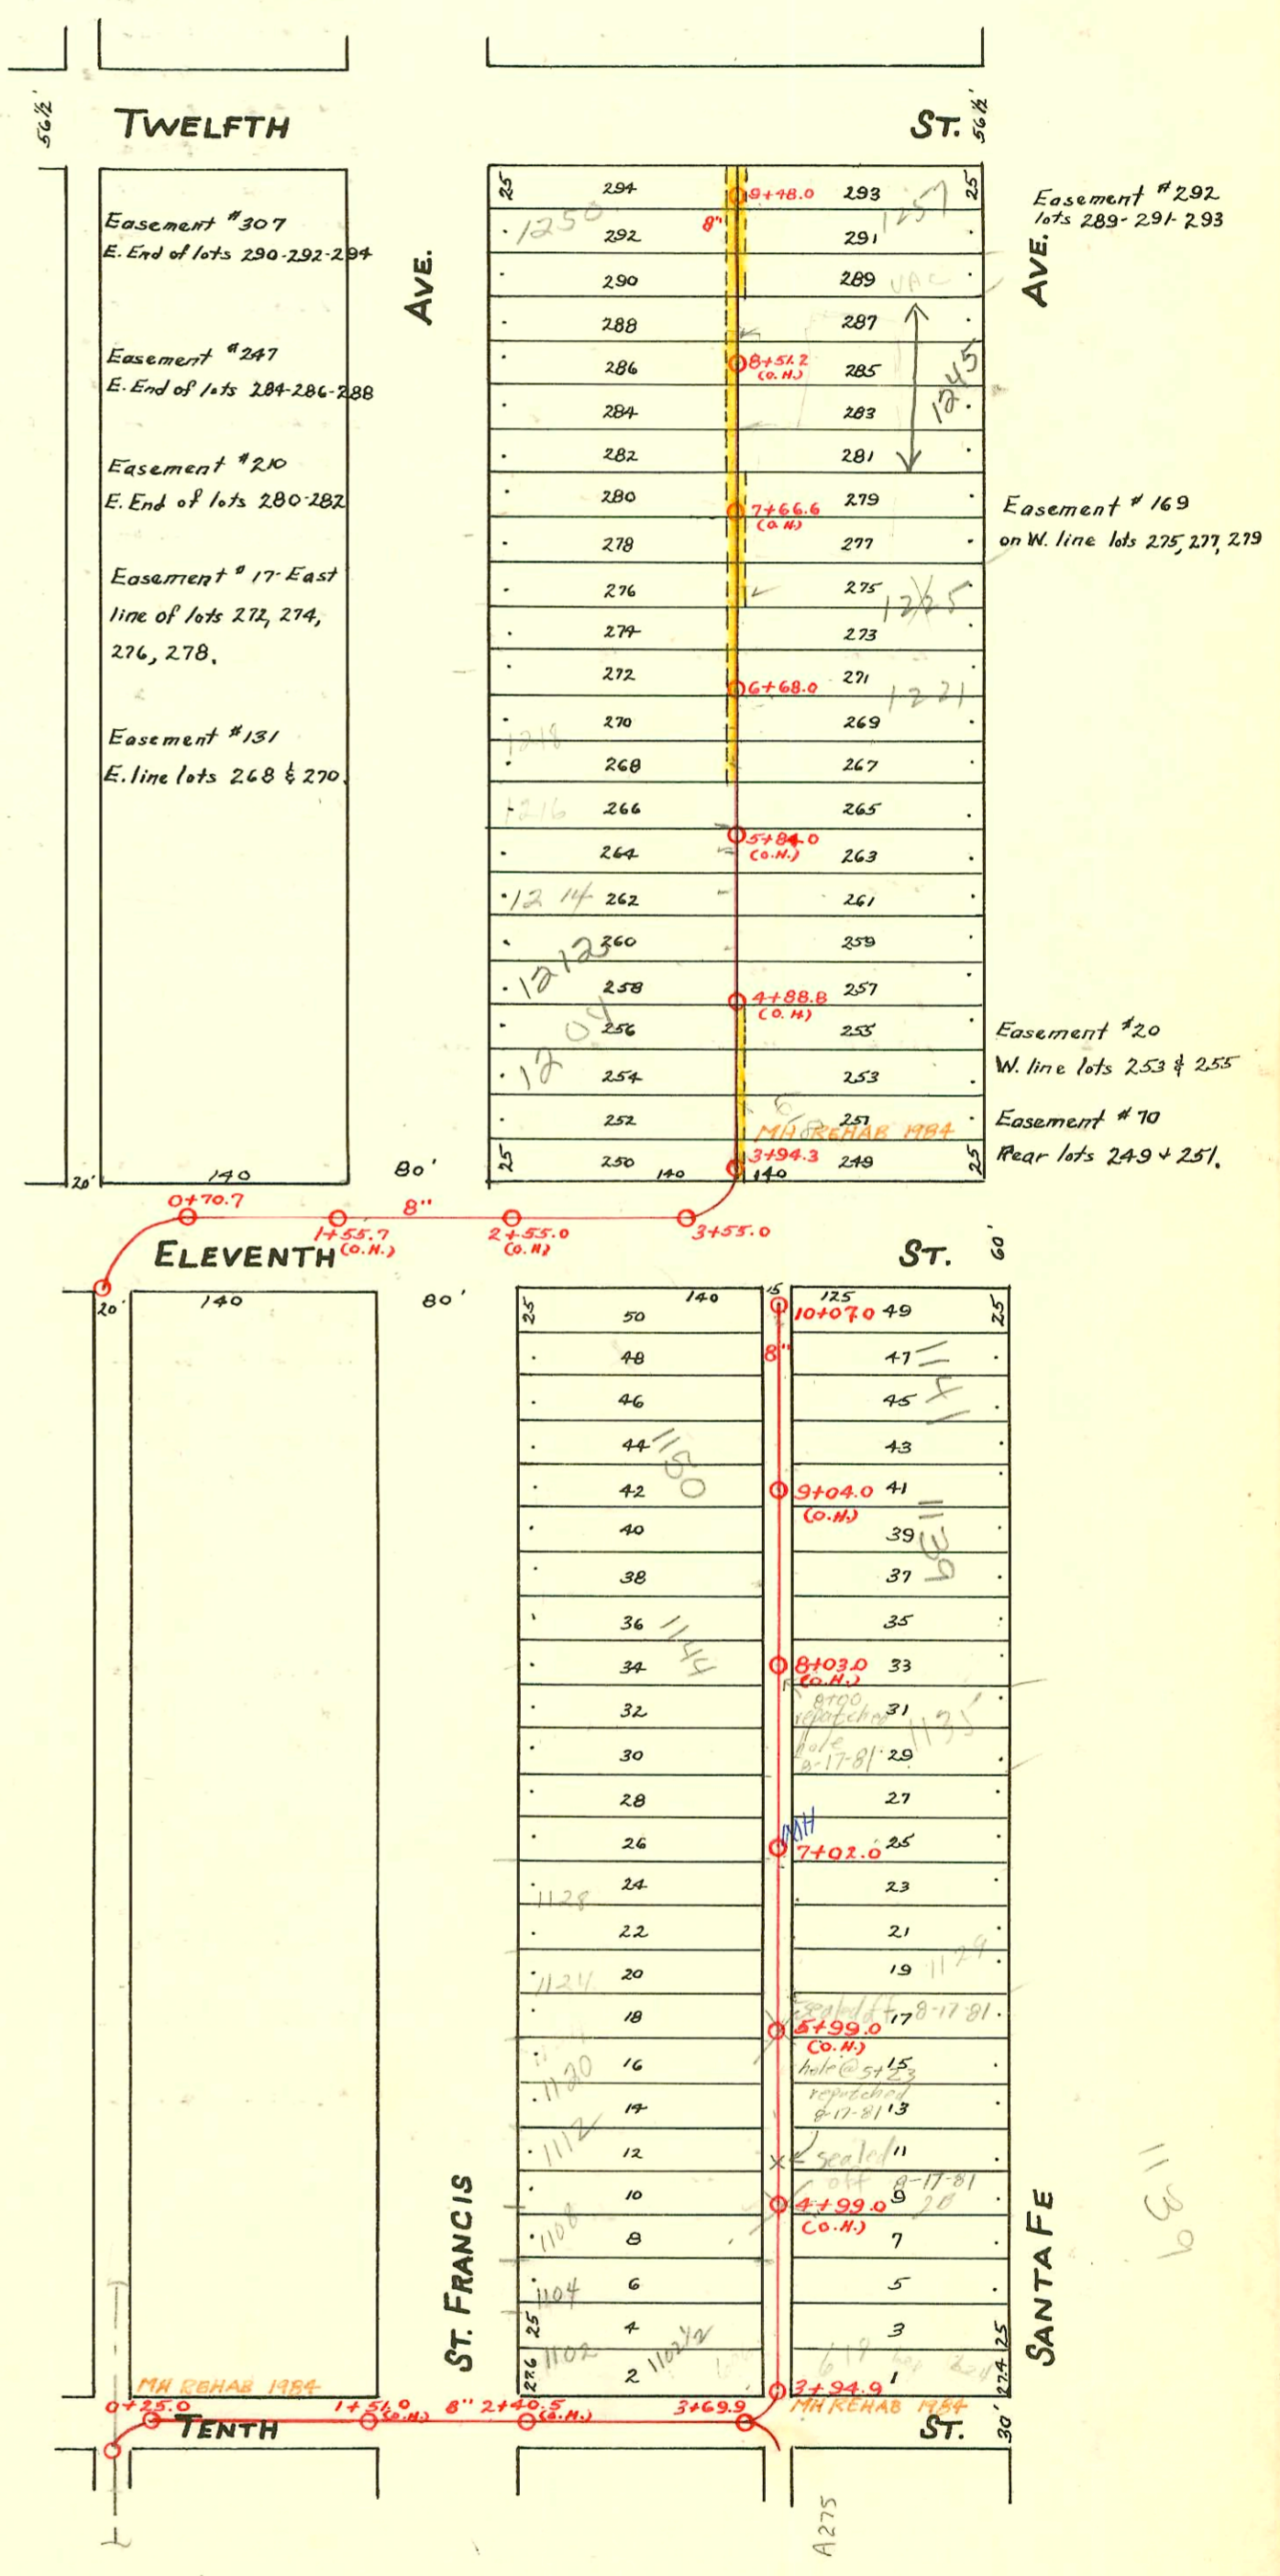 56½'
TWELFTH
ST.
56½'
Easement #307
E. End of lots 290-292-294
Easement #247
E. End of lots 284-286-288
Easement #210
E. End of lots 280-282
Easement #17-East
line of lots 272, 274,
276, 278.
Easement #131
E. line lots 268 & 270.
AVE.
25
294
9+48.0
293
25
1250
8"
1257
292
291
290
289
VAC
288
287
286
8+51.2
(O.H.)
285
1245
284
283
282
281
280
7+66.6
(O.H.)
279
278
277
276
275
1225
274
273
272
6+68.0
271
1221
270
269
1218
268
267
1216
266
265
5+84.0
(O.H.)
264
263
1214
262
261
1212
260
259
258
4+88.8
(O.H)
257
1204
256
255
254
253
252
251
MH REHAB 1984
3+94.3
25
250
140
140
249
25
AVE.
Easement #292
lots 289-291-293
Easement #169
on W. line lots 275, 277, 279
Easement #20
W. line lots 253 & 255
Easement #70
Rear lots 249 + 251.
20'
140
80'
0+70.7
8"
1+55.7
(O.H.)
2+55.0
(O.H)
3+55.0
ELEVENTH
ST.
60'
20'
140
80'
25
140
15
125
50
10+07.0
49
25
8"
48
47
1141
46
45
44
43
1150
42
9+04.0
(O.H.)
41
40
39
1139
38
37
36
35
1144
34
8+03.0
(O.H.)
33
8+00
repatched
hole
8-17-81
32
31
1135
30
29
28
27
MH
26
7+02.0
25
24
23
1128
22
21
20
19
1129
1124
sealed off 8-17-81
18
17
5+99.0
(O.H.)
16
15
1120
hole @ 5+23
repatched
8-17-81
14
13
1112
12
11
sealed
off 8-17-81
10
4+99.0
(O.H.)
9
1108
8
7
6
5
1104
25
4
3
25
1102
1102½
27.6
2
1
27.4
3+94.9
MH REHAB 1984
ST. FRANCIS
SANTA FE
1139
MH REHAB 1984
0+25.0
1+51.0
(O.H.)
8"
2+40.5
(O.H.)
3+69.9
TENTH
ST.
30'
A275